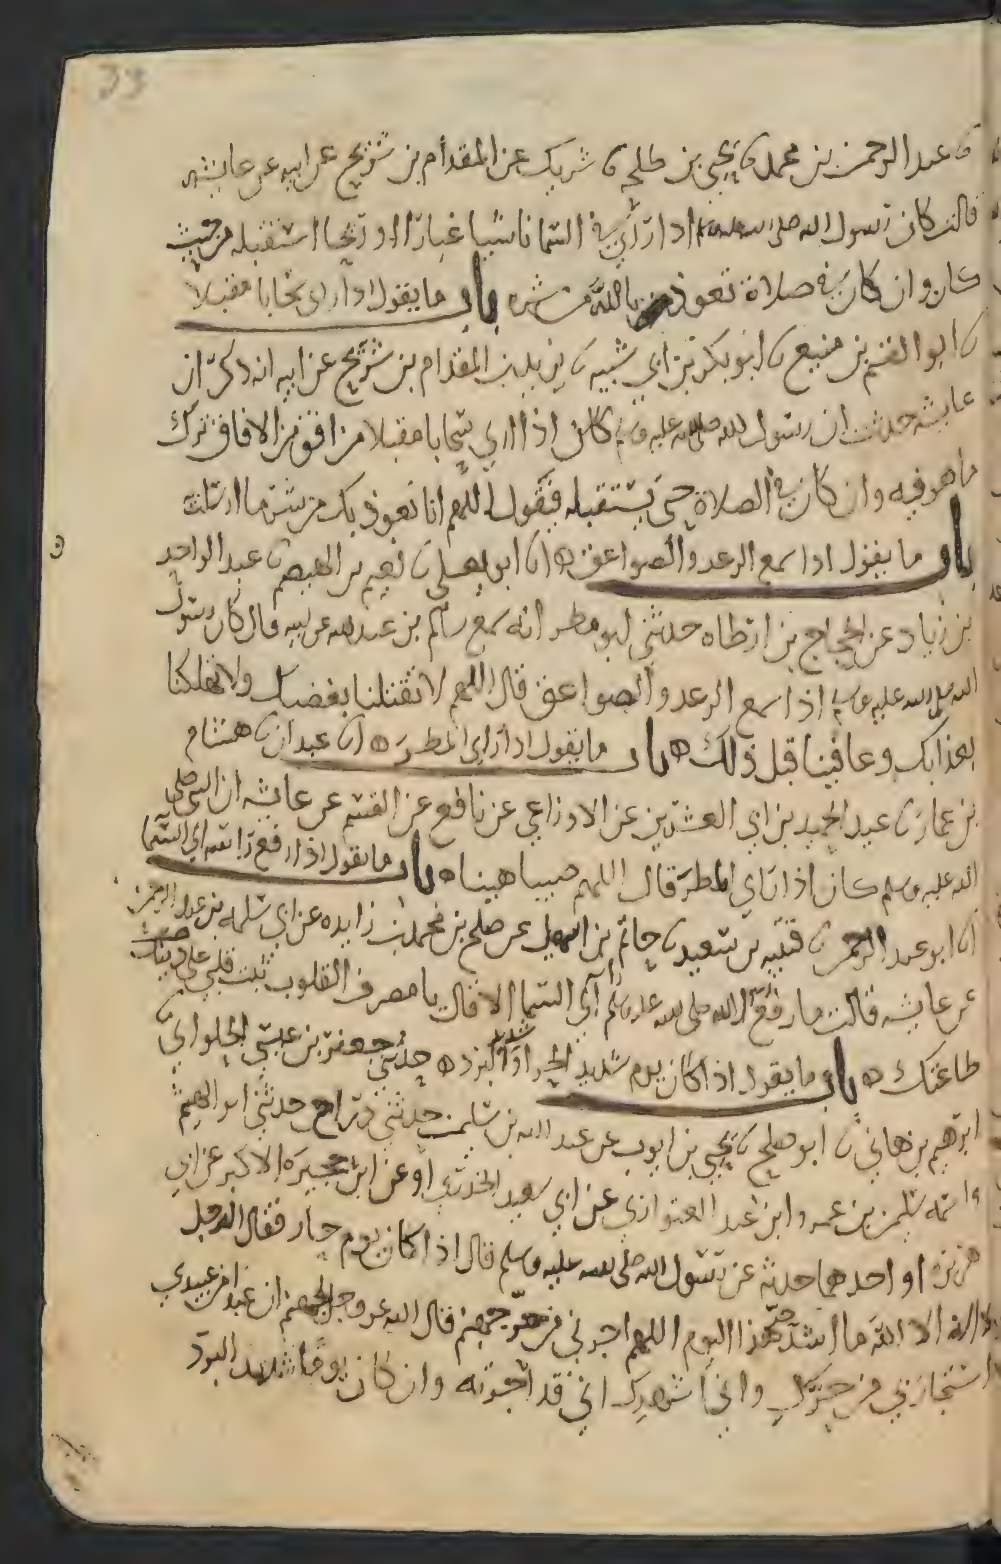 33
ن عبد الرحمن بن محمد ن يحيى بن طلحة ن شريك عن المقدام بن شريح عن ابيه عن عايشه
قالت كان رسول الله صلى الله عليه وسلم اذا رأى في السما ناشيا غبارا او ريحا استقبله من حيث
كان وان كان في صلاة تعوذ بالله من شره باب ما يقول اذا راى سحابا مقبلا
ن ابو القسم بن منيع ن ابو بكر بن ابي شيبه ن يزيد بن المقدام بن شريح عن ابيه انه ذكر ان
عايشه حدثت ان رسول الله صلى الله عليه وسلم كان اذا راى سحابا مقبلا من افق من الافاق ترك
ما هو فيه وان كان في الصلاة حتى يستقبله فيقول اللهم انا نعوذ بك من شر ما ارسلت
باب ما يقول اذا سمع الرعد والصواعق ه انا ابو يعلى ن نعيم بن الهيصم ن عبد الواحد
بن زياد عن الحجاج بن ارطاه حدثني ابو مطر انه سمع سالم بن عبد الله عن ابيه قال كان رسول
الله صلى الله عليه وسلم اذا سمع الرعد والصواعق قال اللهم لا تقتلنا بغضبك ولا تهلكنا
بعذابك وعافينا قبل ذلك ه باب ما يقول اذا راى المطر ه انا عبدان ن هشام
بن عمار ن عبد الحميد بن ابي العشرين عن الاوزاعي عن نافع عن القسم عن عايشه ان النبي صلى
الله عليه وسلم كان اذا راى المطر قال اللهم صيبا هينا ه باب ما يقول اذا رفع راسه الى السما
انا ابو عبد الرحمن ن قتيبه بن سعيد ن حاتم بن اسمعيل عن صلح بن محمد بن زايده عن ابي سلمه بن عبد الرحمن
عن عايشه قالت ما رفع رسول الله صلى الله عليه وسلم راسه الى السما الا قال يا مصرف القلوب ثبت قلبي على
طاعتك ه باب ما يقول اذا كان يوم شديد الحر او شديد البرد ه حدثني جعفر بن عيسى الحلواني ن
ابرهيم بن هاني ن ابو صلح ن يحيى بن ايوب عن عبد الله بن سليمن حدثني دراج حدثني ابو الهيثم
واسمه سليمن بن عمرو ابن عبد العتوارى عن ابي سعيد الخدري او عن ابن حجيره الاكبر عن ابي
هريره او احدهما حدثه عن رسول الله صلى الله عليه وسلم قال اذا كان يوم حار فقال الرجل
لا اله الا الله ما اشد حر هذا اليوم اللهم اجرني من حر جهنم قال الله عز وجل لجهنم ان عبدا من عبيدي
استجارني من حرك واني اشهدك اني قد اجرته وان كان يوما شديد البرد